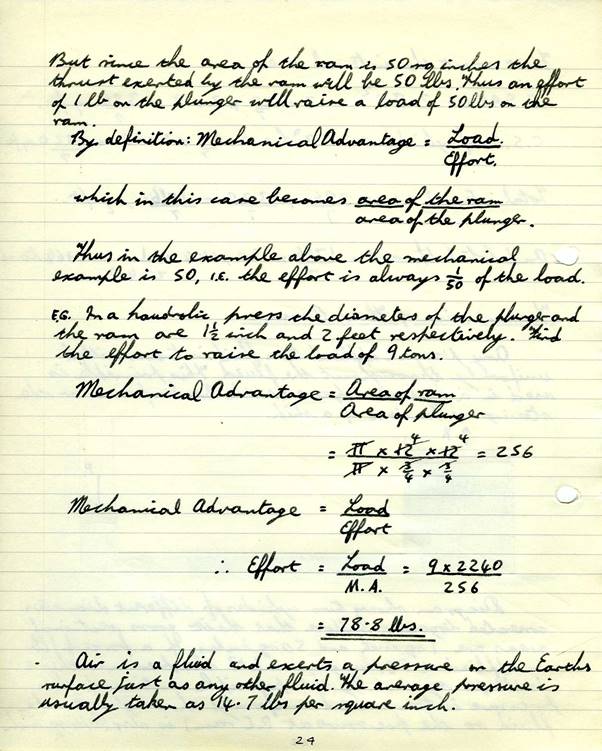 But since the area of the ram is 50 sq inches the
thrust exerted by the ram will be 50 lbs. Thus an effort
of 1 lb on the plunger will raise a load of 50 lbs on the
ram.
By definition: Mechanical Advantage = Load.
Effort.
which in this case becomes area of the ram
area of the plunger.
Thus in the example above the mechanical
example is 50, I.E. the effort is always 1/50 of the load.
EG. In a haudrolic press the diameters of the plunger and
the ram are 1½ inch and 2 feet respectively. Find
the effort to raise the load of 9 tons.
Mechanical Advantage = Area of ram
Area of plunger
= π x 12 4 x 12 4 = 256
π x 3/4 x 3/4
Mechanical Advantage = Load
Effort
∴ Effort = Load = 9 x 2240
M.A. 256
= 78·8 lbs.
Air is a fluid and exerts a pressure on the Earths
surface just as any other fluid. The average pressure is
usually taken as 14·7 lbs per square inch.
24